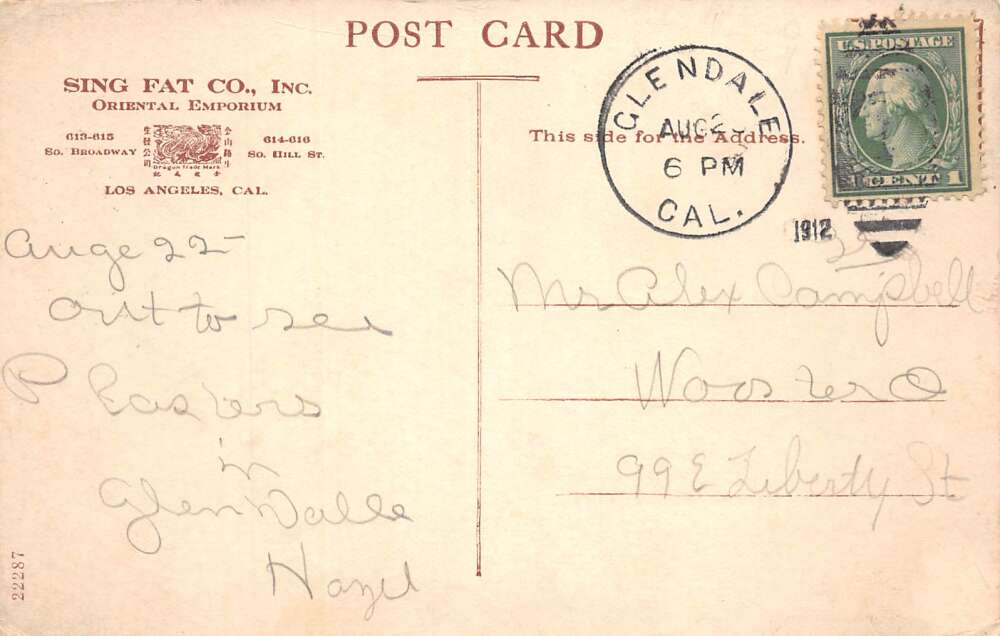 POST CARD
SING FAT CO., INC.
ORIENTAL EMPORIUM
613-615
SO. BROADWAY
614-616
SO. HILL ST.
Dragon Trade Mark
LOS ANGELES, CAL.
This side for the Address.
GLENDALE
AUG 2
6 PM
CAL.
1912
U.S. POSTAGE
1
Auge 22
Out to see
P Easters
in
Glen Dalle
Hazel
22287
Mr Alex Campbell
Wooster O
99 E Liberty St